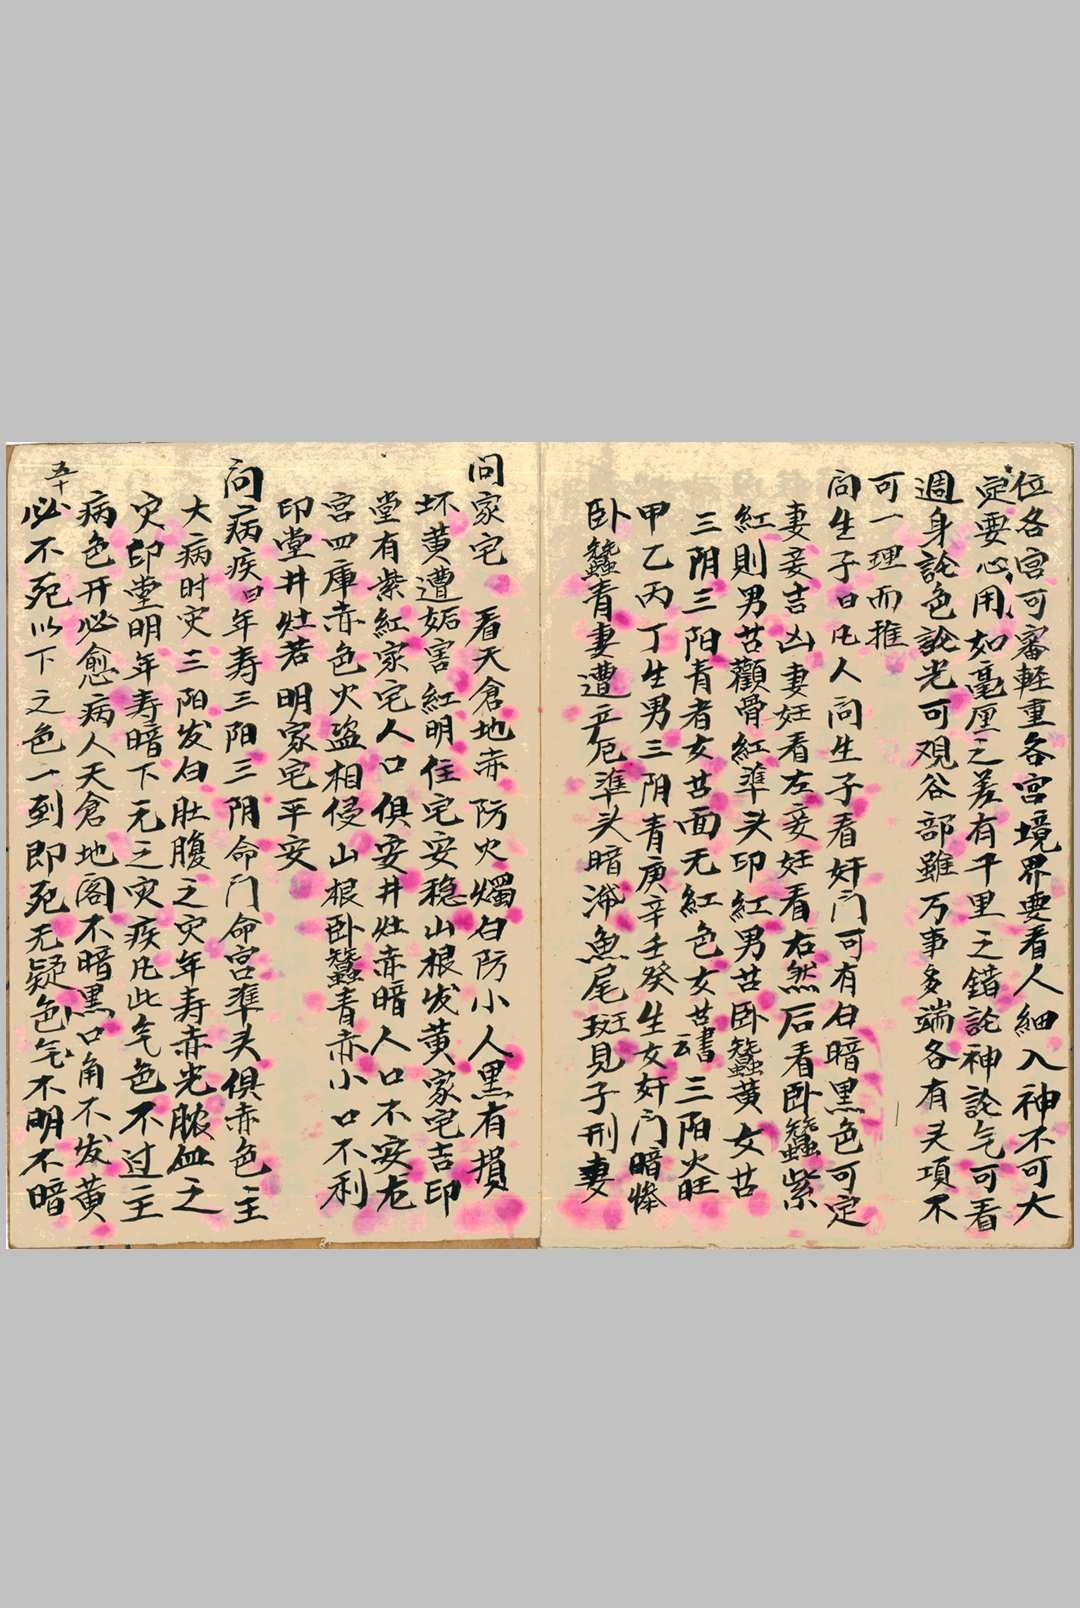 位各宫可審軽重各宫境界要看人細入神不可大
定要心用如毫厘之差有千里之錯論神論气可看
週身論色論光可观谷部雖万事多端各有头項不
可一理而推
问生子曰凡人问生子看奸门可有白暗黑色可定
妻妾吉凶妻妊看左妾妊看右然后看卧蠶紫
紅則男苔顴骨紅準头印紅男苔卧蠶黄女苔
三阴三阳青者女苔面无紅色女苔書云三阳火旺
甲乙丙丁生男三阴青庚辛壬癸生女奸门暗惨
卧蠶青妻遭产厄準头暗滞魚尾斑見子刑妻
问家宅 看天倉地赤防火燭白防小人黑有損
坏黄遭妬害紅明住宅安穏山根发黄家宅吉印
堂有紫紅家宅人口俱安井灶赤暗人口不安尨
宫四庫赤色火盗相侵山根卧蠶青赤小口不利
印堂井灶若明家宅平安
问病疾曰年寿三阳三阴命门命宫準头俱赤色主
大病时灾三阳发白肚腹之灾年寿赤光脓血之
灾印堂明年寿暗下无之灾疾凡此气色不过主
病色开必愈病人天倉地阁不暗黑口角不发黄
必不死以下之色一到即死无疑色气不明不暗
五十